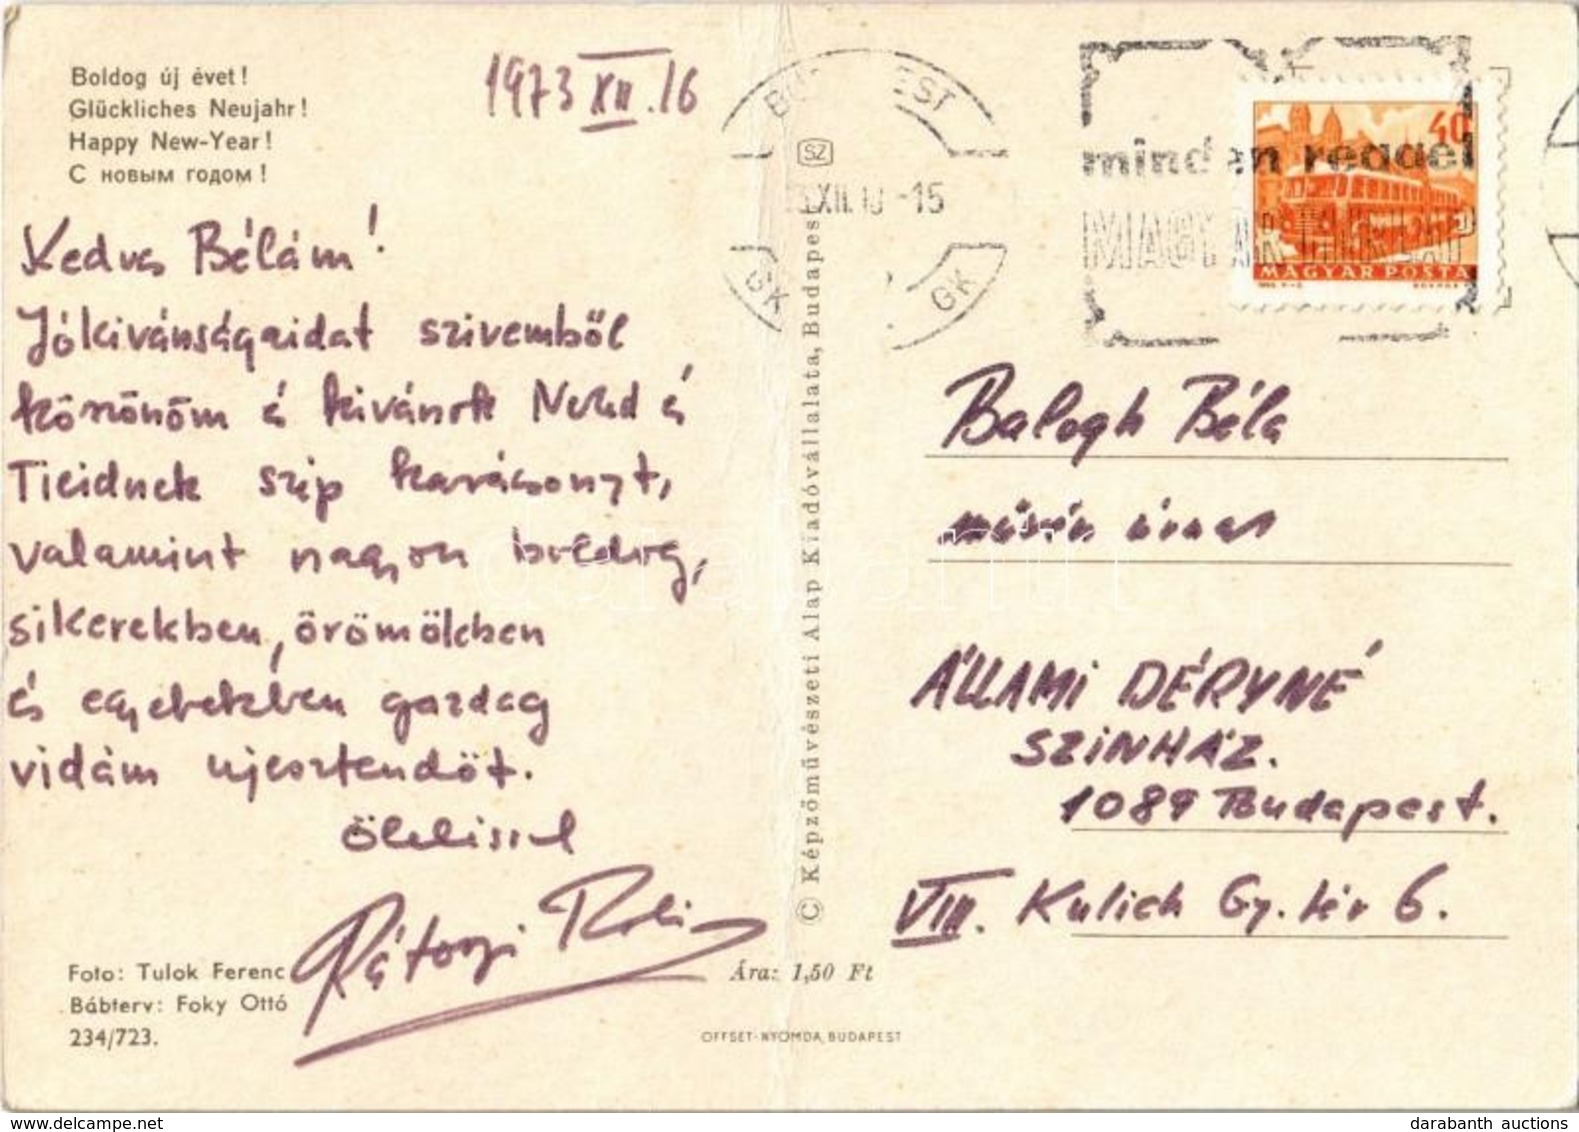 Boldog új évet!
Glückliches Neujahr!
Happy New-Year!
С новым годом!
1973 XII. 16
Kedves Bélám!
Jókivánságaidat szivemből
köszönöm és kivánok Neked és
Tieidnek szép karácsonyt,
valamint nagyon boldog,
sikerekben, örömökben
és egyebekben gazdag
vidám ujesztendőt.
Öleléssel
Rátonyi Robi
Foto: Tulok Ferenc
Bábterv: Foky Ottó
234/723.
© Képzőművészeti Alap Kiadóvállalata, Budapest
SZ
Ára: 1,50 Ft
OFFSET-NYOMDA, BUDAPEST
XII. -15
GK
GK
minden reggel
MAGYAR HIRLAP
40
MAGYAR POSTA
Balogh Béla
művész úrnak
ÁLLAMI DÉRYNÉ
SZINHÁZ.
1089 Budapest.
VIII. Kulich Gy. tér 6.
darabanth
darabanth auctions